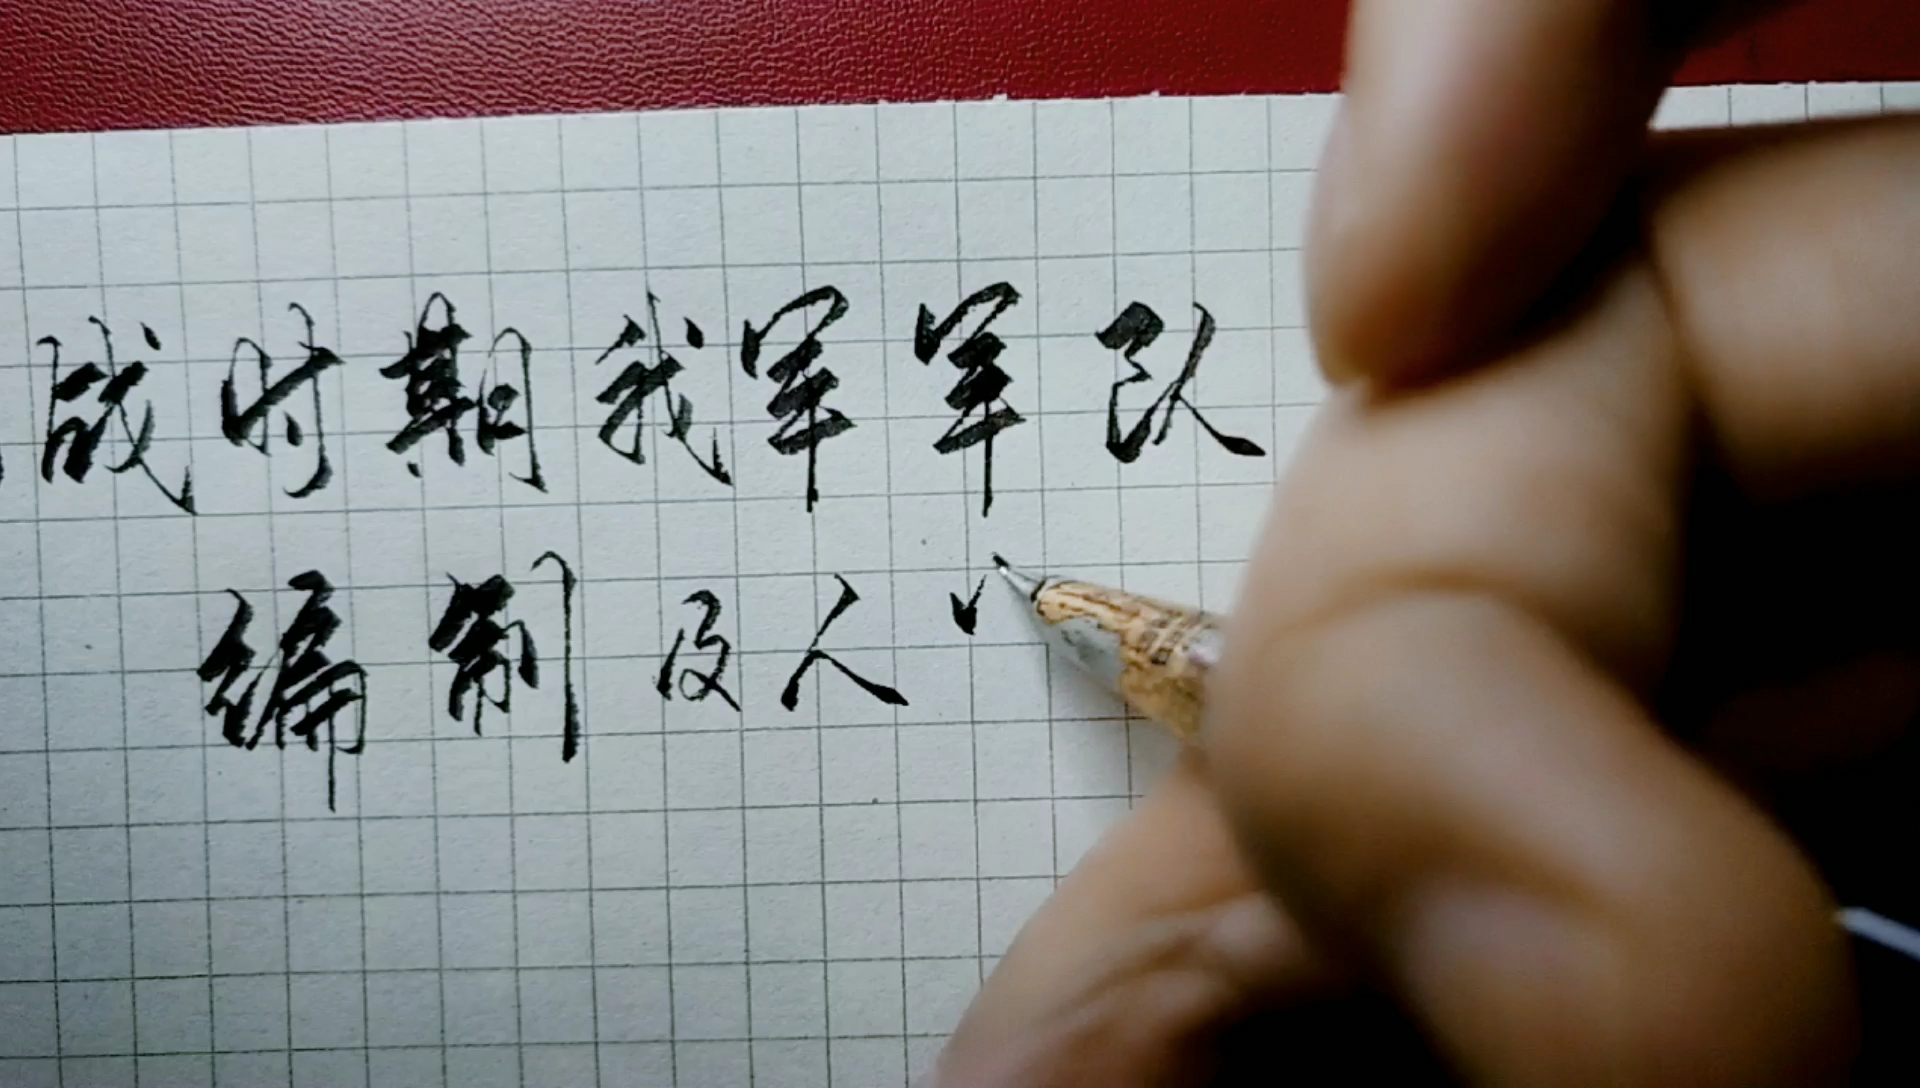 战时期我军军队
编制及人